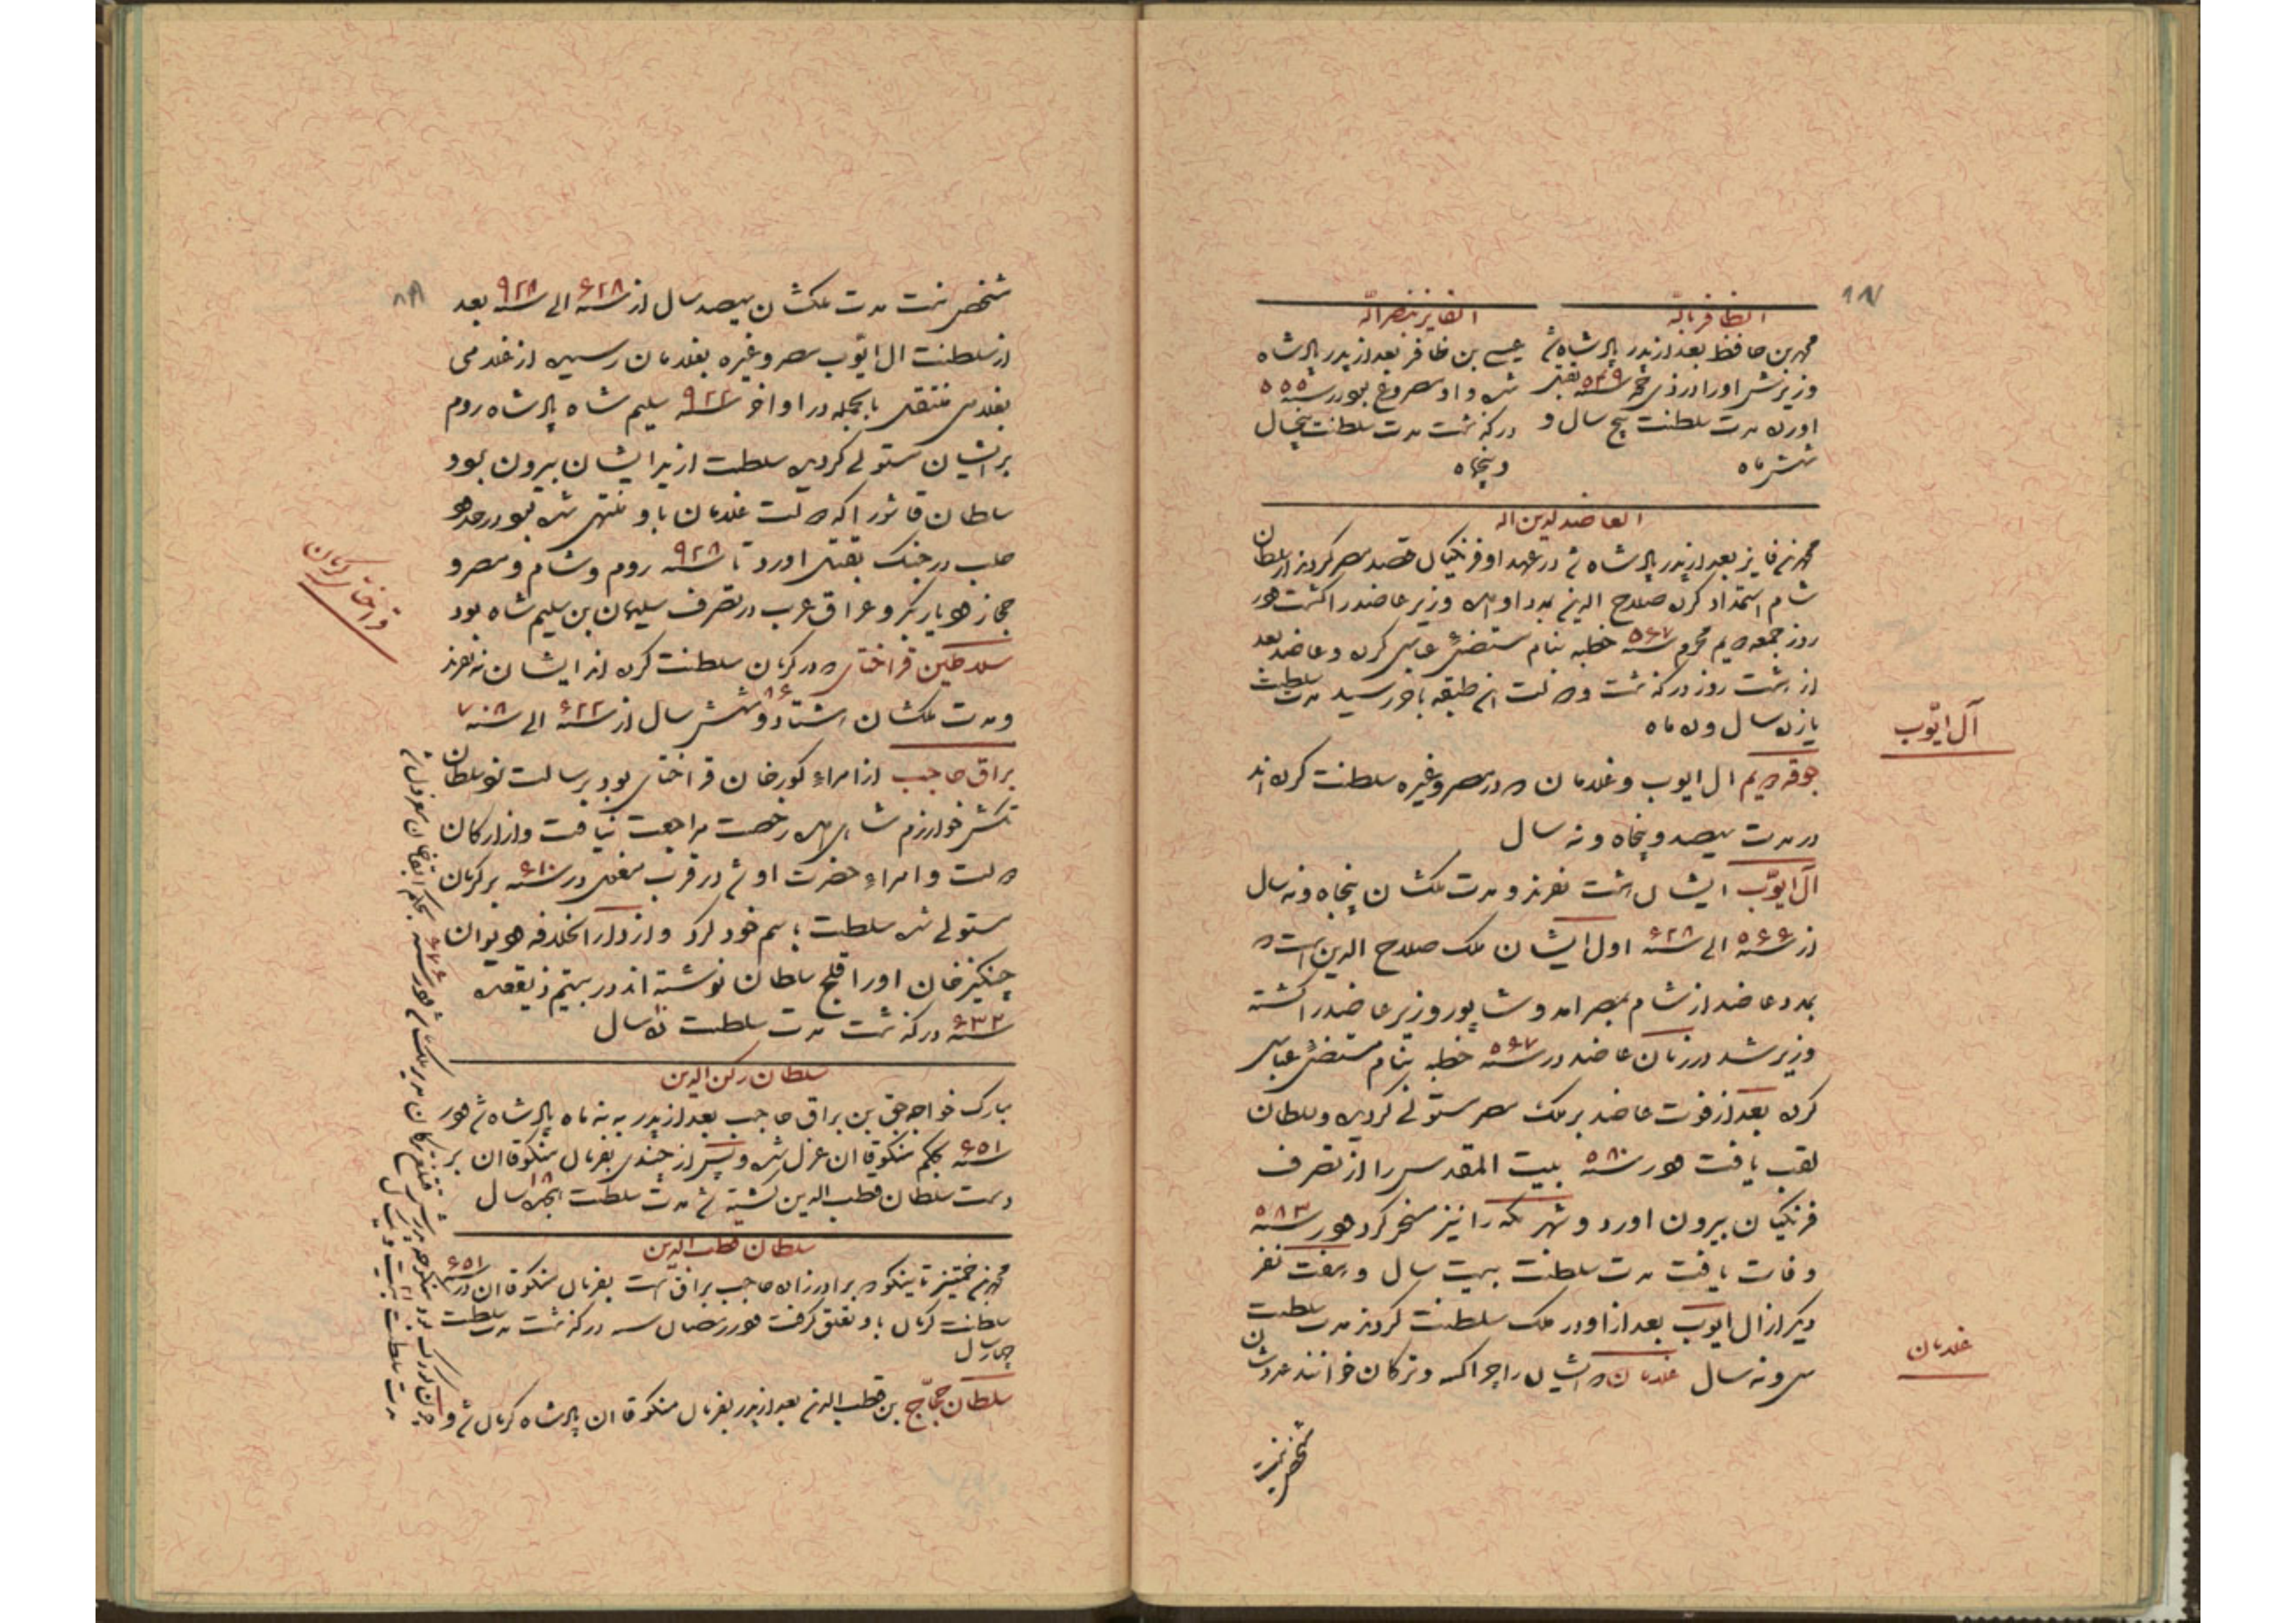 الظافر بالله
محمد بن حافظ بعد از پدر پادشاه شد
وزیرش او را در ذی حجه سنه ۵۴۹ بقتل
اورد مدت سلطنت پنج سال و
شش ماه
الفایز بنصر الله
عیسی بن ظافر بعد از پدر پادشاه
شد و او مصروع بود در سنه ۵۵۵
درگذشت مدت سلطنت پنجسال
و پنجماه
العاضد لدین الله
محمد بن فایز بعد از پدر پادشاه شد در عهد او فرنگیان قصد مصر کردند از سلطان
شام استمداد کرد صلاح الدین بمدد او امد وزیر عاضد را کشت و در
روز جمعه دویم محرم سنه ۵۶۷ خطبه بنام مستضئ عباسی کرد و عاضد بعد
از هشت روز درگذشت و دولت این طبقه باخر رسید مدت سلطنت
یازده سال و ده ماه
آل ایوب
جوقه دویم ال ایوب و غلامان که در مصر و غیره سلطنت کرده اند
در مدت سیصد و پنجاه و نه سال
آل ایوب ایشان هشت نفرند و مدت ملکشان پنجاه و نه سال
از سنه ۵۶۶ الی سنه ۶۲۸ اول ایشان ملک صلاح الدین است که
بمدد عاضد از شام بمصر امد و شاپور وزیر عاضد را کشته
وزیر شد در زمان عاضد در سنه ۵۶۷ خطبه بنام مستضئ عباسی
کرد بعد از فوت عاضد بر ملک مصر مستولی گردید و سلطان
لقب یافت و در سنه ۵۸۰ بیت المقدس را از تصرف
فرنگیان بیرون اورد و شهر مکه را نیز مسخر کرد و در سنه ۵۸۳
وفات یافت مدت سلطنت بیست سال و هفت نفر
دیگر از ال ایوب بعد از او در ملک سلطنت کردند مدت سلطنت
غلامان
سی و نه سال غلامان که ایشان را چراکسه و ترکان خوانند عددشان
شخص نیست
شخص نیست مدت ملکشان سیصد سال از سنه ۶۲۸ الی سنه ۹۲۸ بعد
از سلطنت ال ایوب مصر و غیره بغلامان رسید از غلامی
بغلامی منتقل بالجمله در اواخر سنه ۹۲۲ سلیم شاه پادشاه روم
بر ایشان مستولی گردید سلطنت از ید ایشان بیرون بود
سلطان قانثور را که دولت غلامان باو منتهی شد بود در حدود
حلب در جنگ بقتل اورد تا سنه ۹۲۸ روم و شام و مصر و
حجاز و دیاربکر و عراق عرب در تصرف سلیمان بن سلیم شاه بود
قراختای کرمان
سلاطین قراختای که در کرمان سلطنت کرده اند ایشان نه نفرند
و مدت ملکشان هشتاد و شش ۸۶ سال از سنه ۶۲۲ الی سنه ۷۰۸
براق حاجب از امراء کورخان قراختای بود برسالت نزد سلطان
تکش خوارزم شاهی امد رخصت مراجعت نیافت و از ارکان
دولت و امراء حضرت او شد در قرب مغول در سنه ۶۱۰ بر کرمان
مستولی شد سلطنت باسم خود کرد و از دار الخلافه و دیوان
چنگیز خان او را قلج سلطان نوشته اند در بیستم ذیقعده
سنه ۶۳۲ درگذشت مدت سلطنت ده سال
سلطان رکن الدین
مبارک خواجه جق بن براق حاجب بعد از پدر به نه ماه پادشاه شد و در
سنه ۶۵۱ بحکم منکوقاان عزل شد و پس از چندی بفرمان منکوقاان بر
دست سلطان قطب الدین کشته شد مدت سلطنت ۱۸ هجده سال
سلطان قطب الدین
محمد بن تاینکو که برادر زاده حاجب براق است بفرمان منکوقاان در سنه ۶۵۱
سلطنت کرمان باو تعلق گرفت و در رمضان سنه درگذشت مدت سلطنت
چهار سال
سلطان حجاج بن قطب الدین بعد از پدر بفرمان منکوقاان پادشاه کرمان شد و